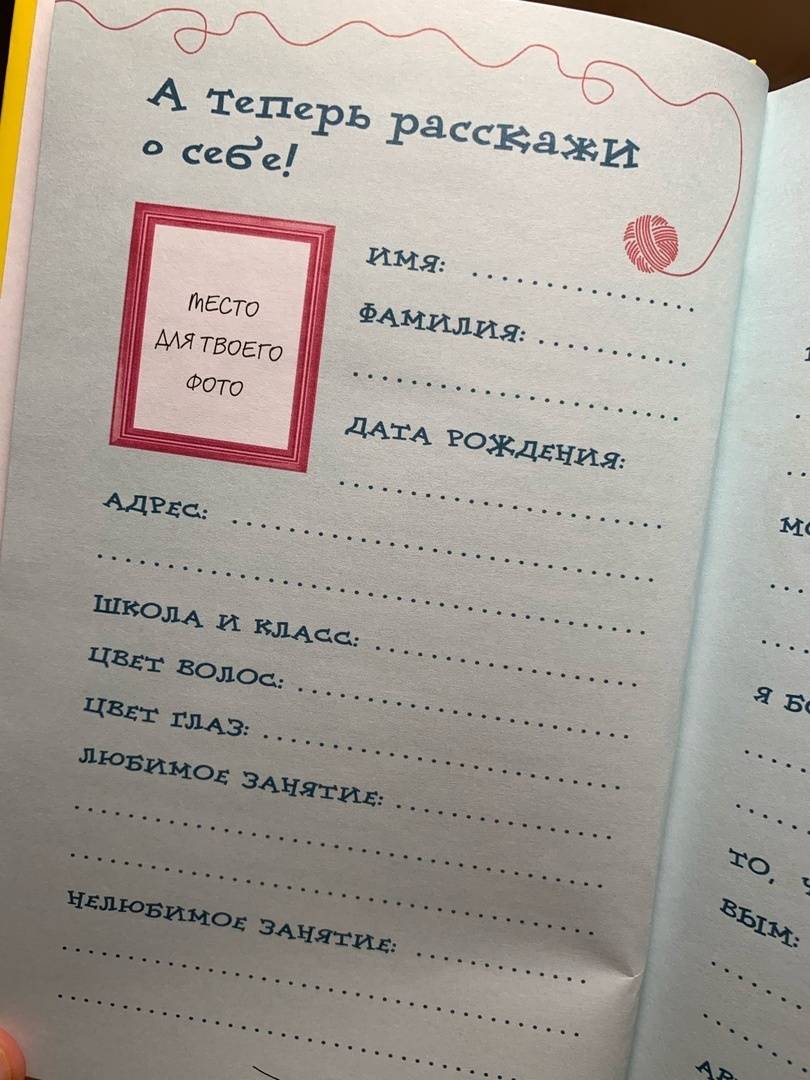 А теперь расскажи
о себе!
МЕСТО
ДЛЯ ТВОЕГО
ФОТО
ИМЯ:
ФАМИЛИЯ:
ДАТА РОЖДЕНИЯ:
АДРЕС:
ШКОЛА И КЛАСС:
ЦВЕТ ВОЛОС:
ЦВЕТ ГЛАЗ:
ЛЮБИМОЕ ЗАНЯТИЕ:
НЕЛЮБИМОЕ ЗАНЯТИЕ:
Я
ТО,
ВЫМ: